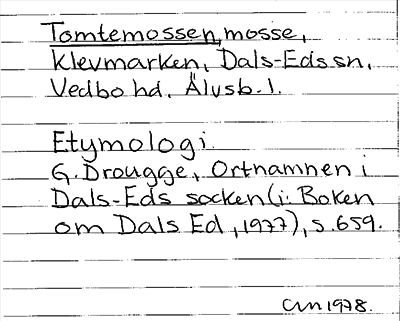 Tomtemossen, mosse,
Klevmarken, Dals-Eds sn,
Vedbo hd, Älvsb. l.
Etymologi
G. Drougge, Ortnamnen i
Dals-Eds socken (i: Boken
om Dals Ed, 1977), s. 659.
1978.